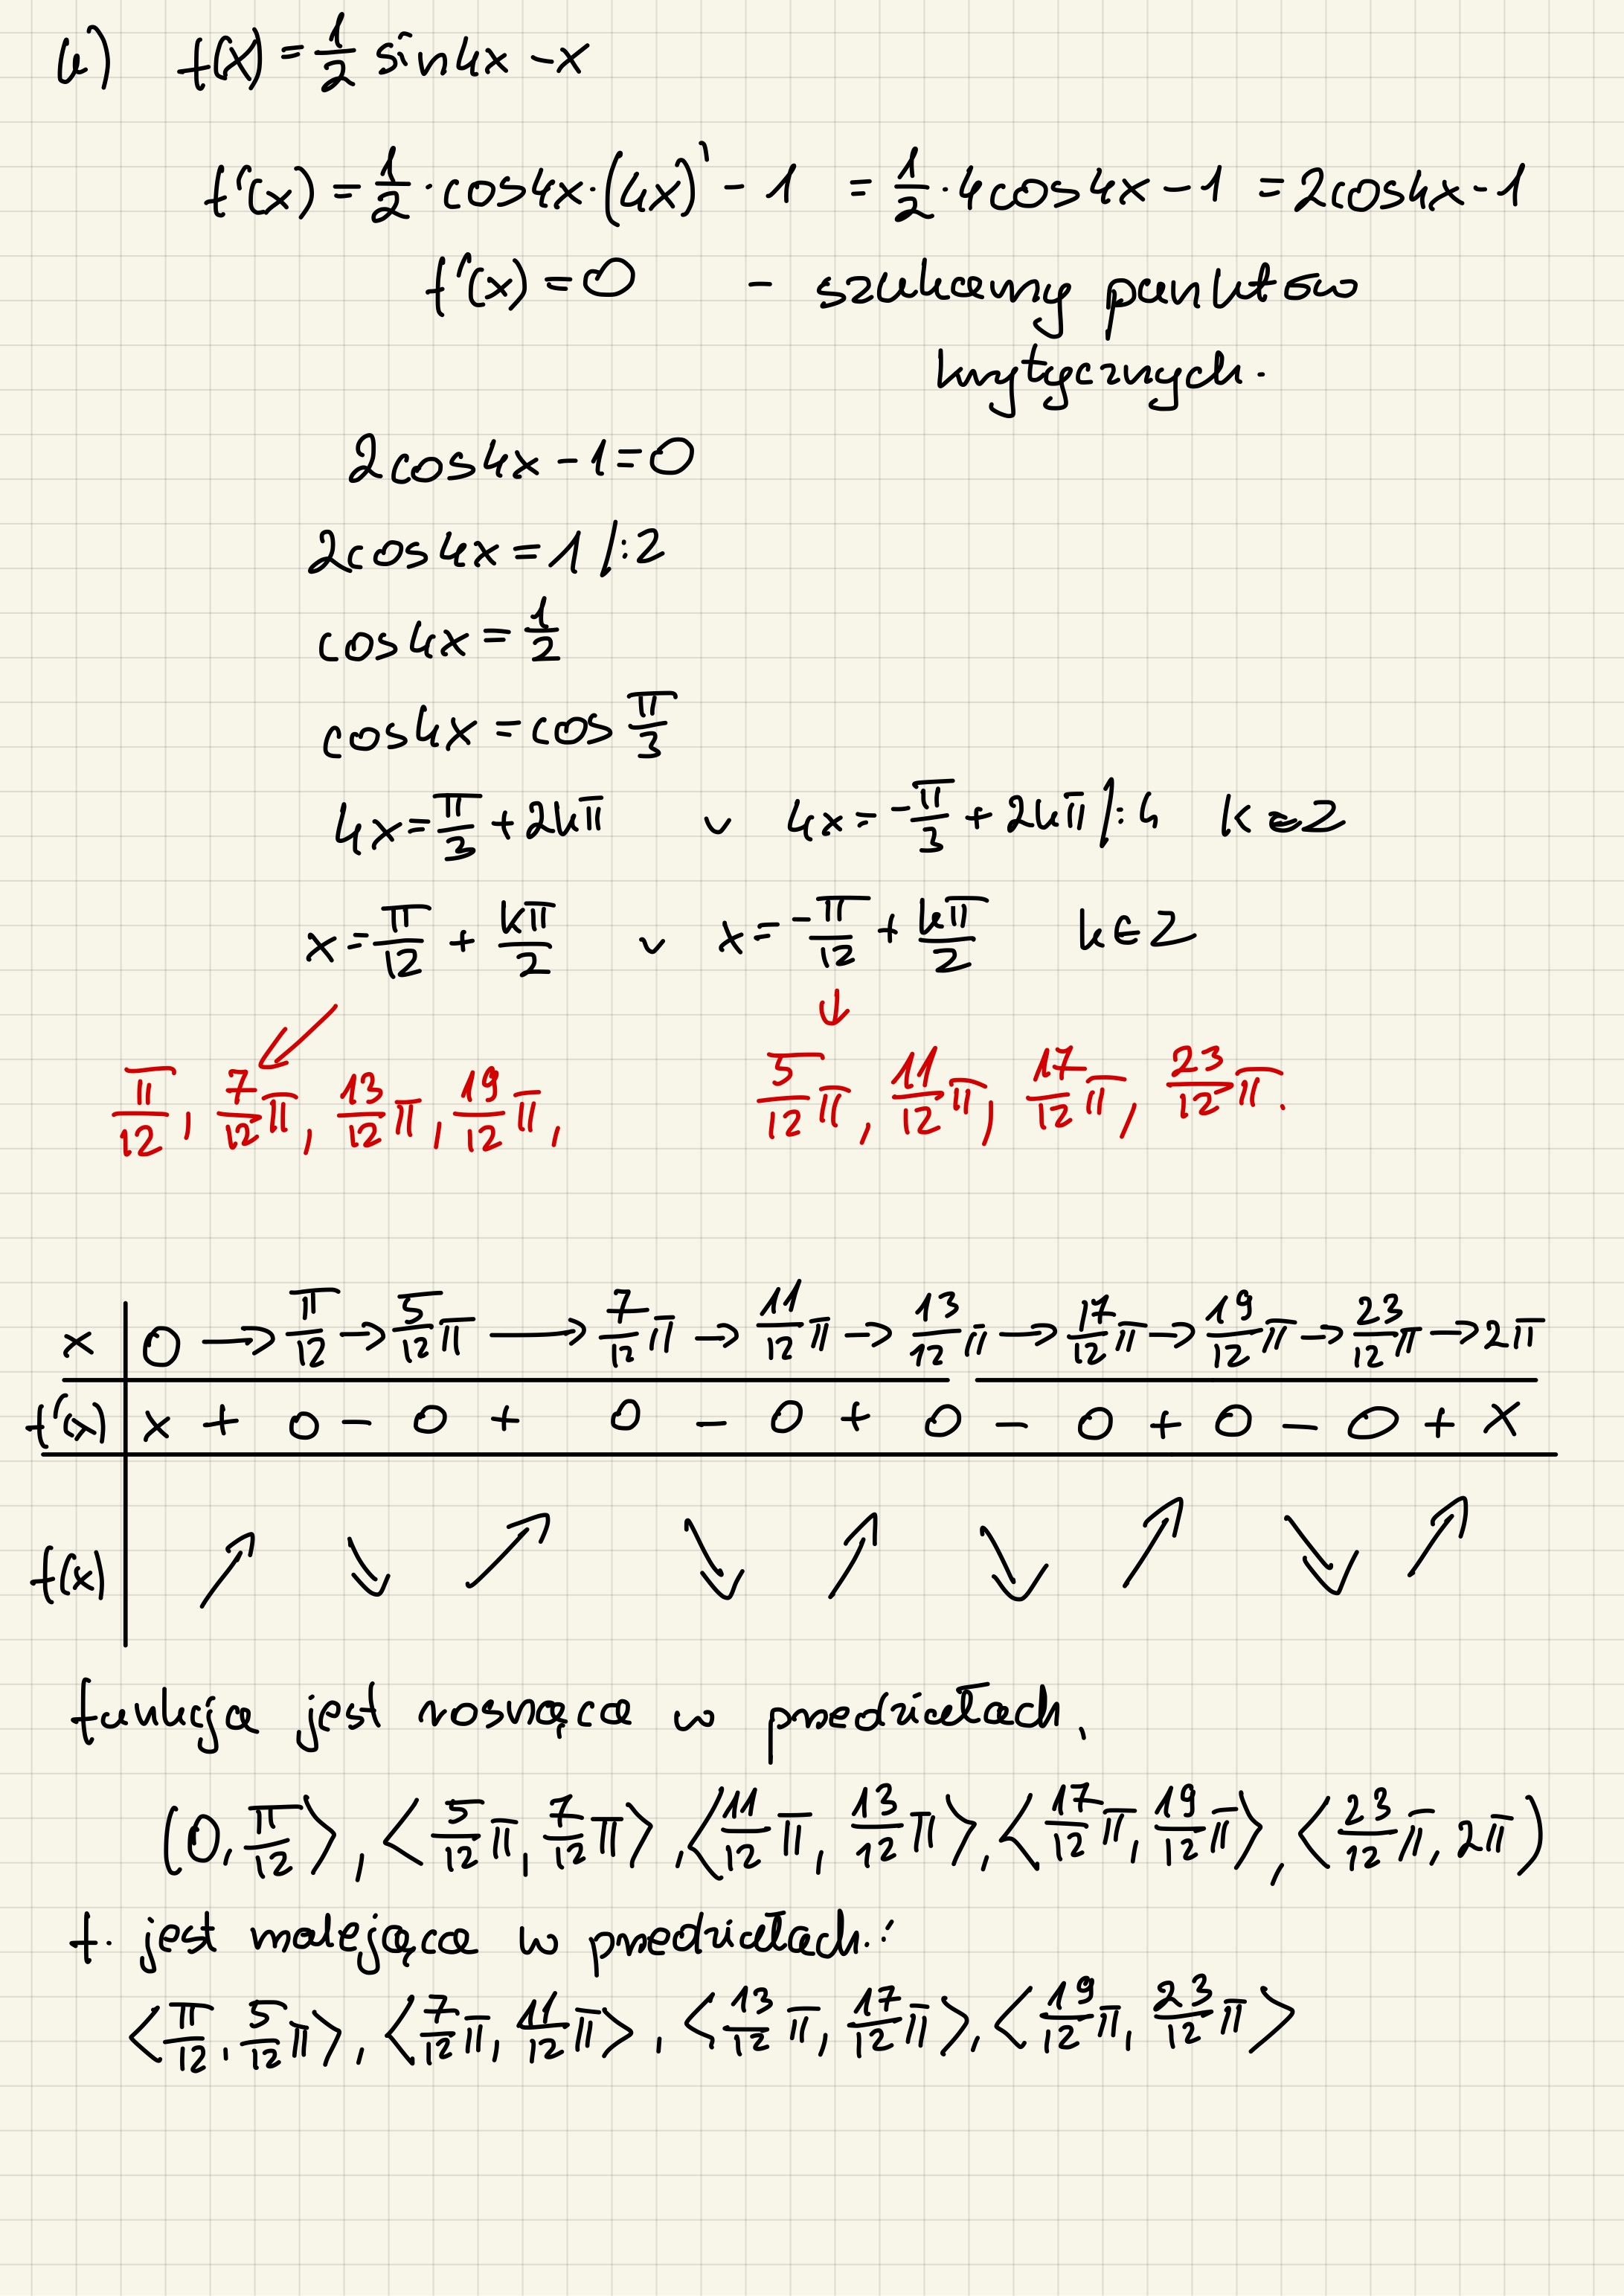 k) f(x) = 1/2 sin4x - x
f'(x) = 1/2 · cos4x · (4x)' - 1 = 1/2 · 4cos4x - 1 = 2cos4x - 1
f'(x) = 0 - szukamy punktów
krytycznych.
2cos4x - 1 = 0
2cos4x = 1 /:2
cos4x = 1/2
cos4x = cos π/3
4x = π/3 + 2kπ ∨ 4x = -π/3 + 2kπ /:4 k∈Z
x = π/12 + kπ/2 ∨ x = -π/12 + kπ/2 k∈Z
π/12, 7/12 π, 13/12 π, 19/12 π, 5/12 π, 11/12 π, 17/12 π, 23/12 π.
x | 0 → π/12 → 5/12 π → 7/12 π → 11/12 π → 13/12 π → 17/12 π → 19/12 π → 23/12 π → 2π
f'(x) | x + 0 - 0 + 0 - 0 + 0 - 0 + 0 - 0 + x
f(x) | ↗ ↘ ↗ ↘ ↗ ↘ ↗ ↘ ↗
funkcja jest rosnąca w przedziałach,
(0, π/12⟩, ⟨5/12 π, 7/12 π⟩, ⟨11/12 π, 13/12 π⟩, ⟨17/12 π, 19/12 π⟩, ⟨23/12 π, 2π)
f. jest malejąca w przedziałach:
⟨π/12, 5/12 π⟩, ⟨7/12 π, 11/12 π⟩, ⟨13/12 π, 17/12 π⟩, ⟨19/12 π, 23/12 π⟩